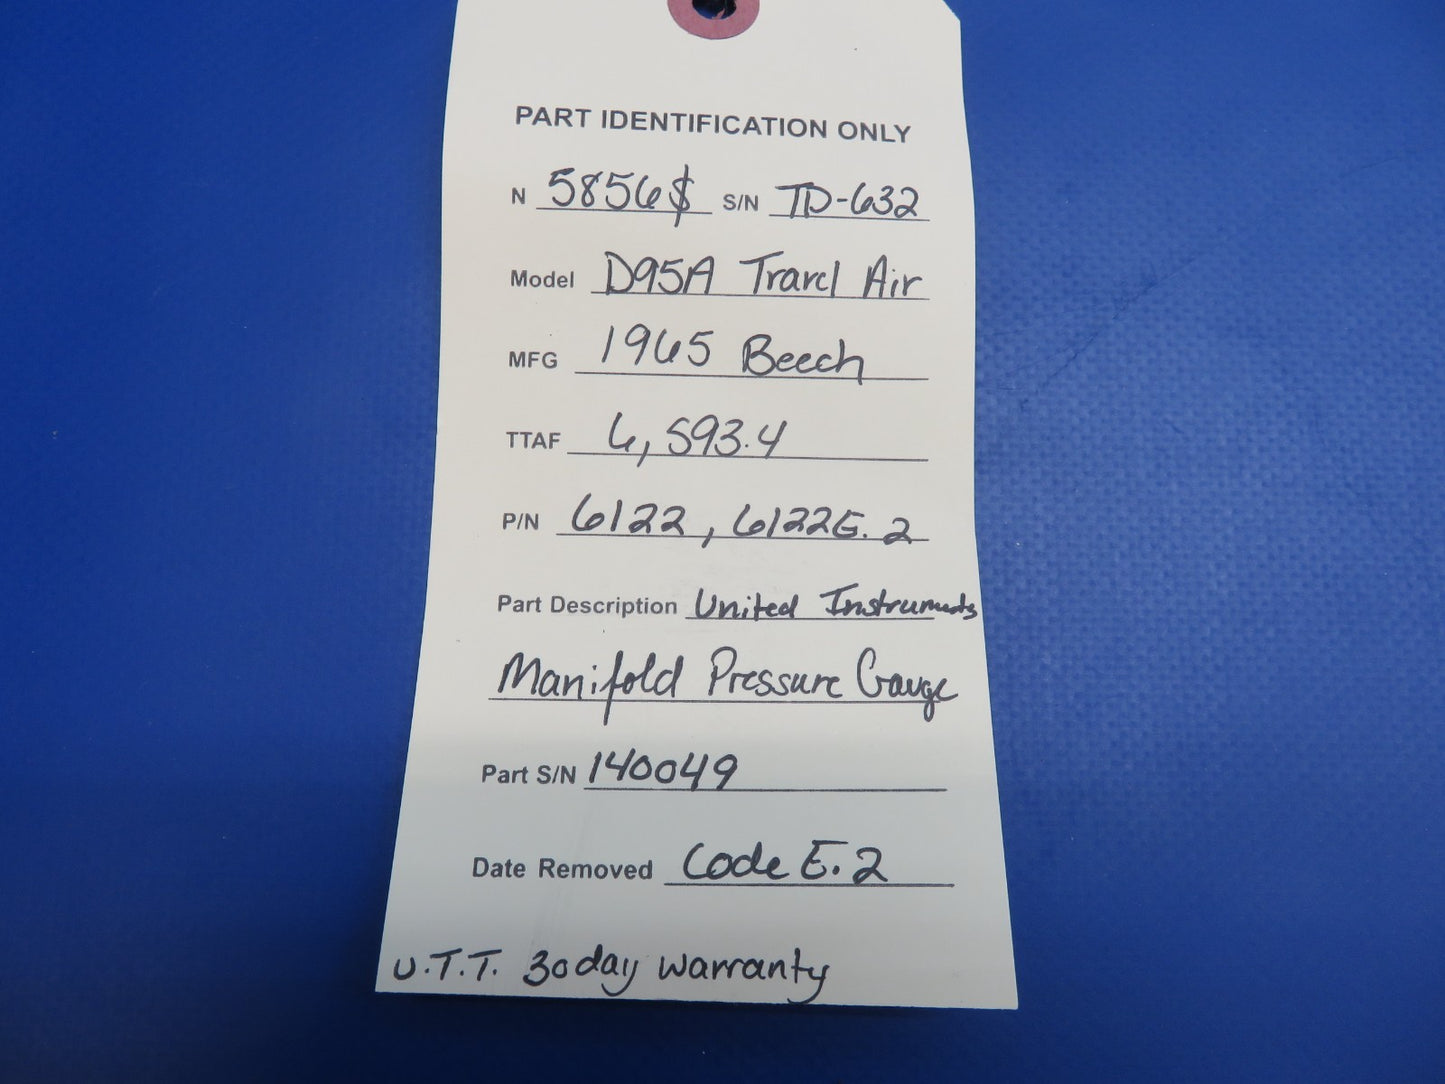 PART IDENTIFICATION ONLY
N 5856$ S/N TD-632
Model D95A Travel Air
MFG 1965 Beech
TTAF 6,593.4
P/N 6122, 6122E.2
Part Description United Instruments
Manifold Pressure Gauge
Part S/N 140049
Date Removed Code E.2
U.T.T. 30 day warranty